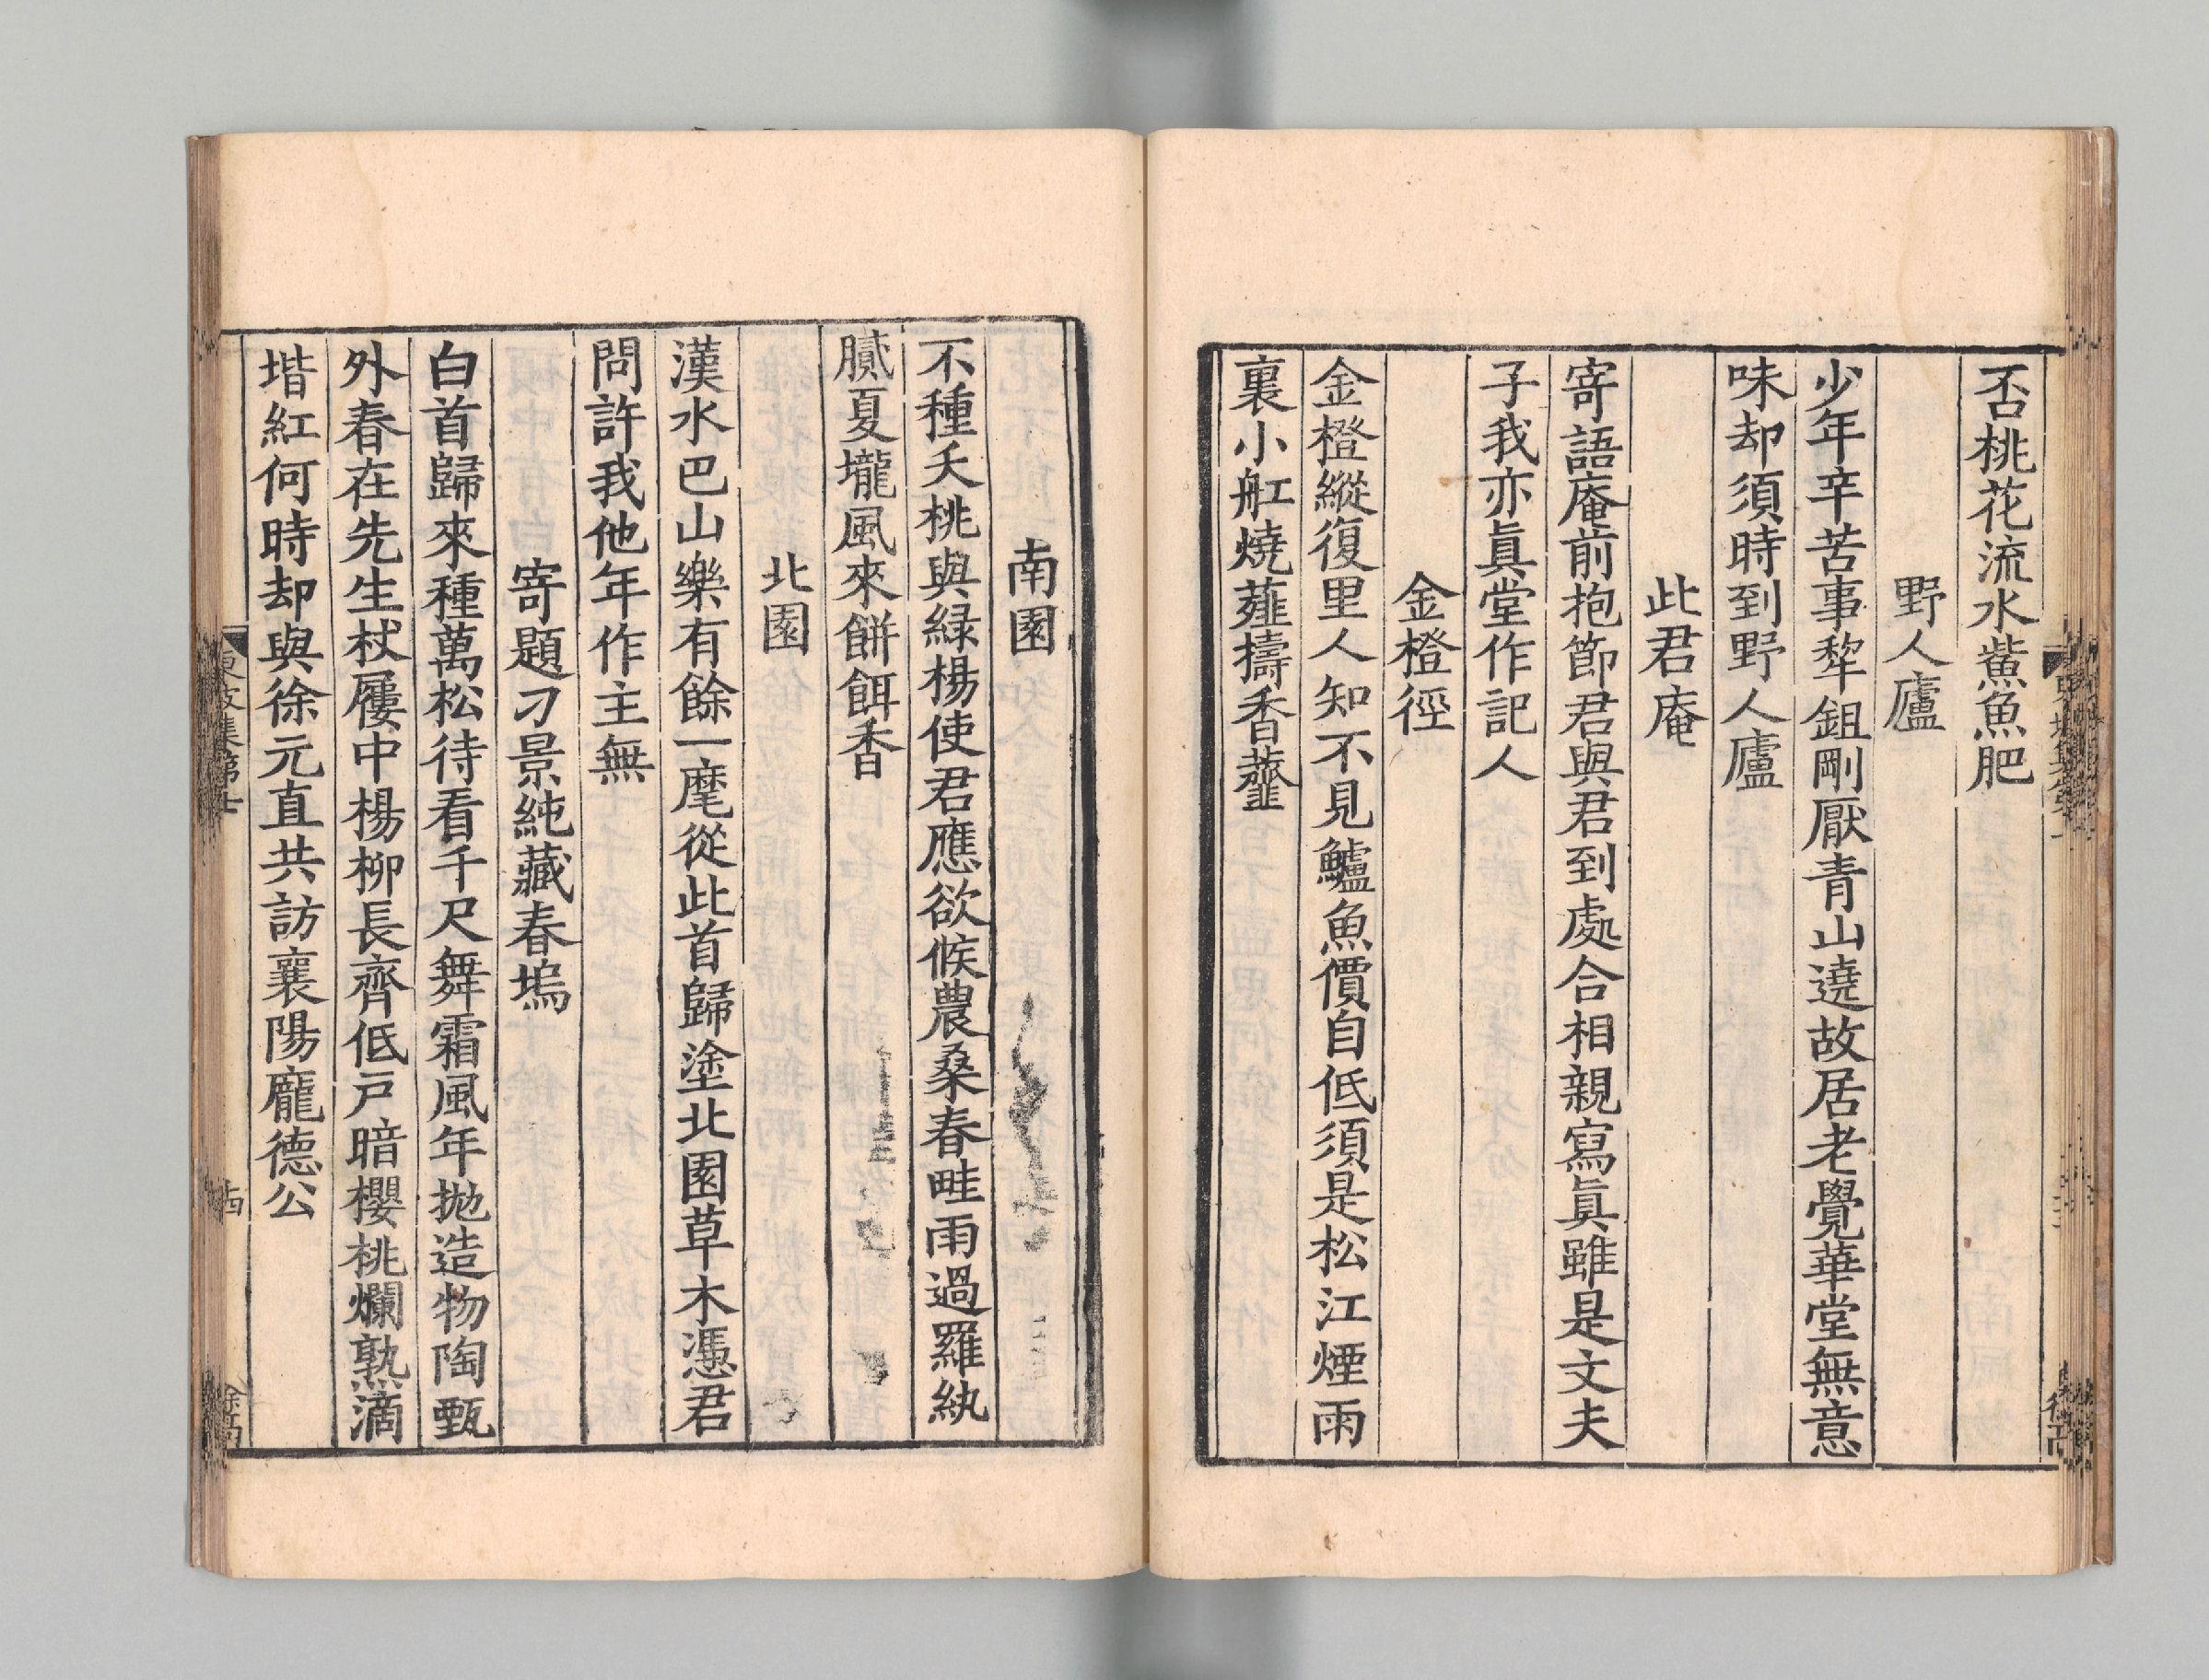 否桃花流水鮆魚肥
野人廬
少年辛苦事犂鉏剛厭青山遶故居老覺華堂無意
味却須時到野人廬
此君庵
寄語庵前抱節君與君到處合相親寫眞雖是文夫
子我亦眞堂作記人
金橙徑
金橙縱復里人知不見鱸魚價自低須是松江煙雨
裏小舡燒薤擣香虀
南園
不種夭桃與緑楊使君應欲候農桑春畦雨過羅紈
膩夏壠風來餅餌香
北園
漢水巴山樂有餘一麾從此首歸塗北園草木憑君
問許我他年作主無
寄題刁景純藏春塢
白首歸來種萬松待看千尺舞霜風年抛造物陶甄
外春在先生杖屨中楊柳長齊低戸暗櫻桃爛熟滴
堦紅何時却與徐元直共訪襄陽龐德公
東坡集第七
十四